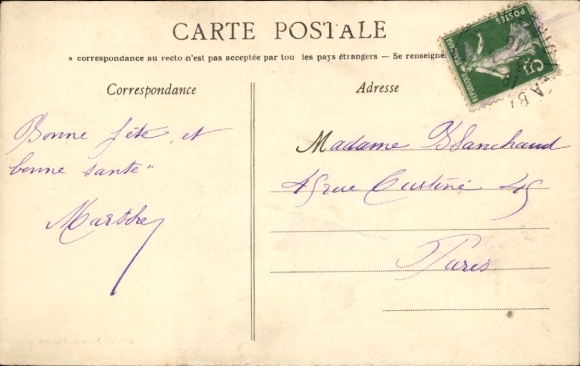 CARTE POSTALE
a correspondance au recto n'est pas acceptée par tou les pays étrangers — Se renseigne
Correspondance
Adresse
Bonne fête et
bonne santé
Marthe
Madame Blanchaud
45 rue Custine 45
Paris
POSTES